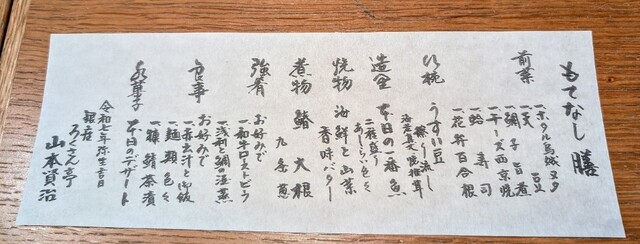 もてなし膳
前菜
一、ホタル烏賊ヌタ
一、天豆
一、鯛子旨煮
一、チーズ西京焼
一、蛤寿司
一、花弁百合根
八椀
うすい豆
擦り流し
海老真丈 椎茸
造里
本日の一番魚
二種盛り
あしらい色々
焼物
海鮮と山菜
香味バター
煮物
鰆 大根
九条葱
強肴
お好みで
一、和牛ローストビーフ
一、浅利と鯛の酒蒸
食事
お好みで
一、赤出汁と御飯
一、麺類色々
一、練鯖茶漬
水菓子
本日のデザート
令和七年弥生吉日
銀座
ろくさん亭
山本資治